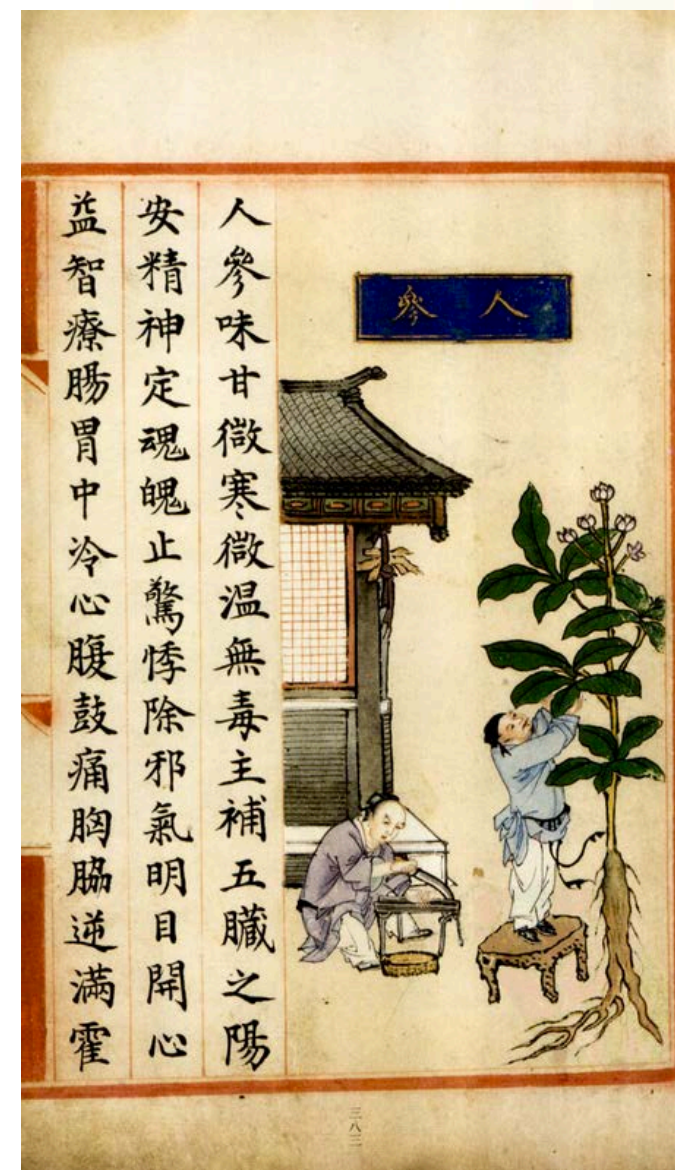 人參
人參味甘微寒微温無毒主補五臟之陽
安精神定魂魄止驚悸除邪氣明目開心
益智療腸胃中冷心腹鼓痛胸脇逆滿霍
三八三